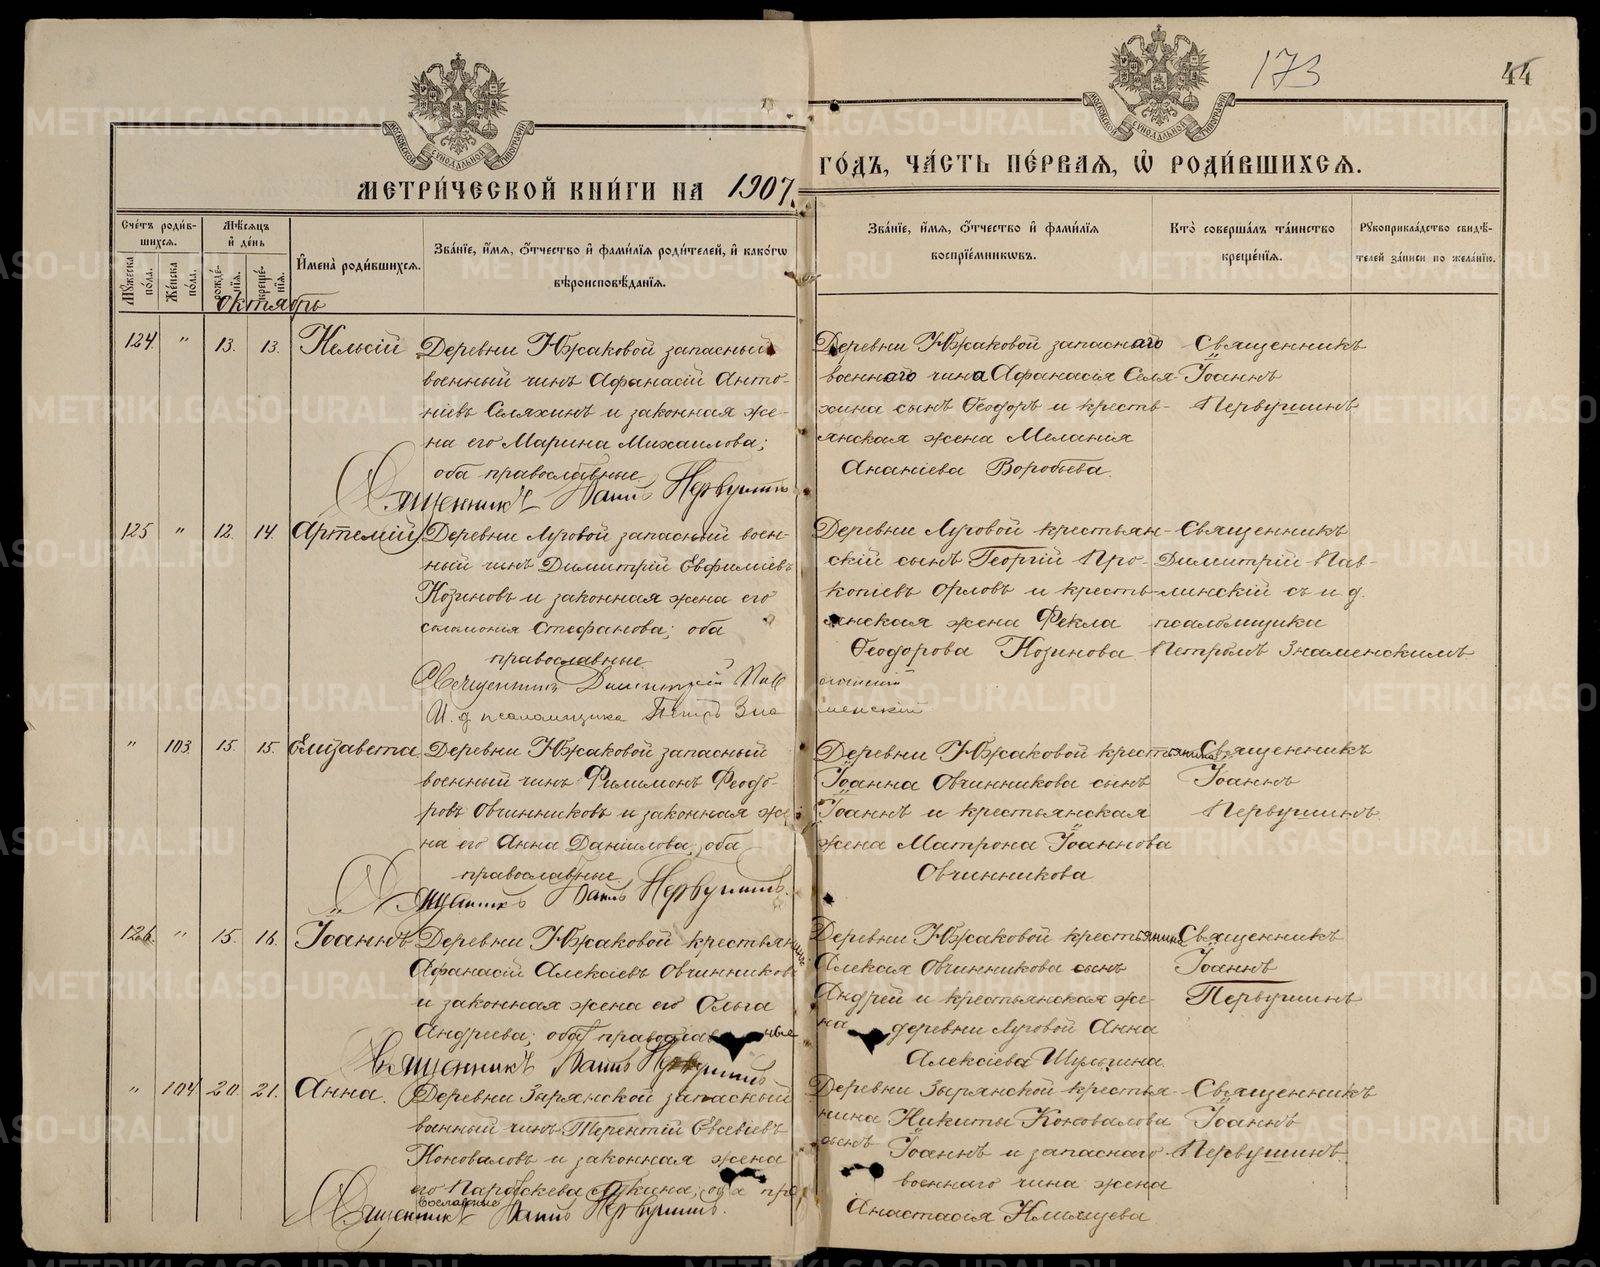 173
44
МЕТРИ́ЧЕСКОЙ КНИ́ГИ НА 1907 ГО́ДЪ, ЧА́СТЬ ПЕ́РВАЯ, Ѡ РОДИ́ВШИХСЯ.
Сче́тъ роди́вшихся.
Му́жеска по́ла.
Же́нска по́ла.
Мѣ́сяцъ и де́нь
рожде́нія.
креще́нія.
Имена̀ роди́вшихся.
Зва́ніе, и́мя, о́тчество и фами́лія роди́телей, и како́гѡ
вѣроисповѣ́данія.
Зва́ніе, и́мя, о́тчество и фами́лія
воспріе́мникѡвъ.
Кто̀ соверша́лъ та́инство
креще́нія.
Рукоприкла́дство свидѣ́-
телей за́писи по жела́нію.
Октябрь
124. " 13. 13. Кельсій
Деревни Южаковой запасный
военный чинъ Афанасій Анто-
ніевъ Селяхинъ и законная же-
на его Марина Михаилова;
оба православные
Священникъ Іоаннъ Первушинъ
Деревни Южаковой запаснаго
военнаго чина Афанасія Селя-
хина сынъ Ѳеодоръ и кресть-
янская жена Меланія
Ананіева Воробьева.
Священникъ
Іоаннъ
Первушинъ
125 " 12. 14. Артемій
Деревни Луговой запасный воен-
ный чинъ Димитрій Евфиміевъ
Козиновъ и законная жена его
Соломонія Стефанова; оба
православные
Священникъ Димитрій Павлинскій
И. д. псаломщика Петръ Знаменскій
Деревни Луговой крестьян-
скій сынъ Георгій Про-
копіевъ Орловъ и кресть-
янская жена Фекла
Ѳеодорова Козинова
Священникъ
Димитрій Пав-
линскій съ и. д.
псаломщика
Петромъ Знаменскимъ
" 103. 15. 15. Елизавета
Деревни Южаковой запасный
военный чинъ Филимонъ Феодо-
ровъ Овчинниковъ и законная же-
на его Анна Даніилова; оба
православные
Священникъ Іоаннъ Первушинъ.
Деревни Южаковой крестьянина
Іоанна Овчинникова сынъ
Іоаннъ и крестьянская
жена Матрона Іоаннова
Овчинникова
Священникъ
Іоаннъ
Первушинъ
126. " 15. 16. Іоаннъ
Деревни Южаковой крестьянинъ
Афанасій Алексіевъ Овчинниковъ
и законная жена его Ольга
Андреева; оба православные
Священникъ Іоаннъ Первушинъ
Деревни Южаковой крестьянина
Алексія Овчинникова сынъ
Андрей и крестьянская же-
на деревни Луговой Анна
Алексіева Шульгина.
Священникъ
Іоаннъ
Первушинъ
" 104. 20. 21. Анна.
Деревни Зырянской запасный
военный чинъ Терентій Евсевіевъ
Коноваловъ и законная жена
его Параскева; оба пра-
вославные
Священникъ Іоаннъ Первушинъ.
Деревни Зырянской крестья-
нина Никиты Коновалова
сынъ Іоаннъ и запаснаго
военнаго чина жена
Анастасія
Священникъ
Іоаннъ
Первушинъ
METRIKI.GASO-URAL.RU